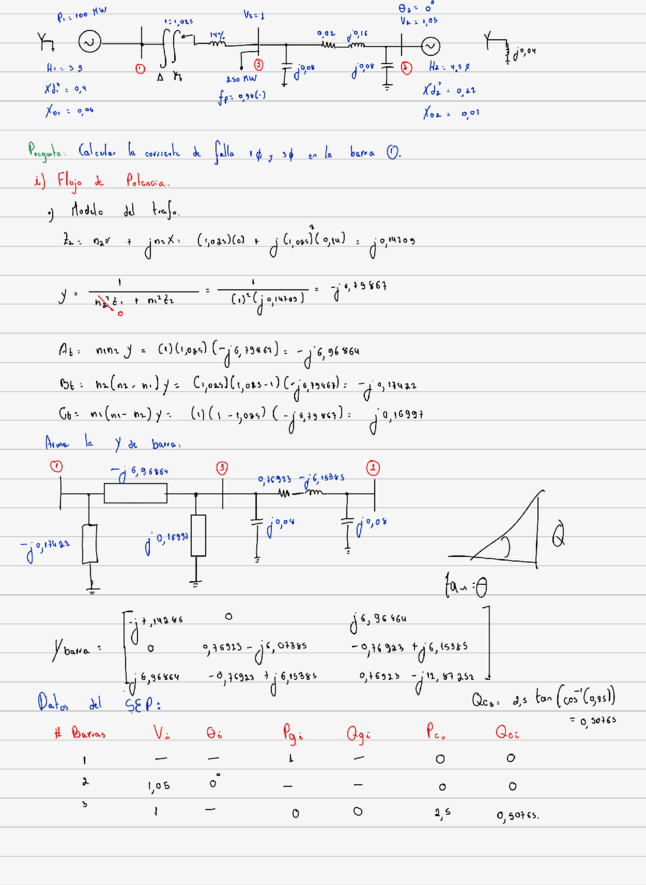 P₁ = 100 MW
1:1,025
14%
V₃ = 1
0,02
j0,16
θ₂ = 0°
V₂ = 1,05
Y
①
Δ
③
j0,08
j0,08
②
Y
j0,04
H₁ = 3 s
Xd₁ = 0,4
X₀₁ = 0,06
250 MW
fp = 0,98(-)
H₂ = 4,5 s
Xd₂ = 0,22
X₀₂ = 0,03
Pregunta: Calcular la corriente de falla 1ϕ y 3ϕ en la barra ①.
i) Flujo de Potencia.
•) Modelo del trafo.
Z₂ = n₂r + jn₂X = (1,025)(0) + j(1,025)²(0,14) = j0,14709
y = 1 / (n₂²z₁ + n₁²z₂) = 1 / ((1)²(j0,14709)) = -j6,79867
0
At = n₁n₂ y = (1)(1,025)(-j6,79867) = -j6,96864
Bt = n₂(n₂ - n₁) y = (1,025)(1,025-1)(-j6,79867) = -j0,17422
Ct = n₁(n₁ - n₂) y = (1)(1-1,025)(-j6,79867) = j0,16997
Arma la Y de barra:
①
-j6,96864
③
0,76923 - j6,15385
②
-j0,17422
j0,16997
j0,08
j0,08
Q
tan = θ
Ybarra =
-j7,14286 0 j6,96864
0 0,76923 - j6,07385 -0,76923 + j6,15385
j6,96864 -0,76923 + j6,15385 0,76923 - j12,87252
Datos del SEP:
Qc₃ = 2,5 tan(cos⁻¹(0,98))
= 0,50765
# Barras Vi θi Pgi Qgi Pci Qci
1 — — 1 — 0 0
2 1,05 0° — — 0 0
3 1 — 0 0 2,5 0,50765.